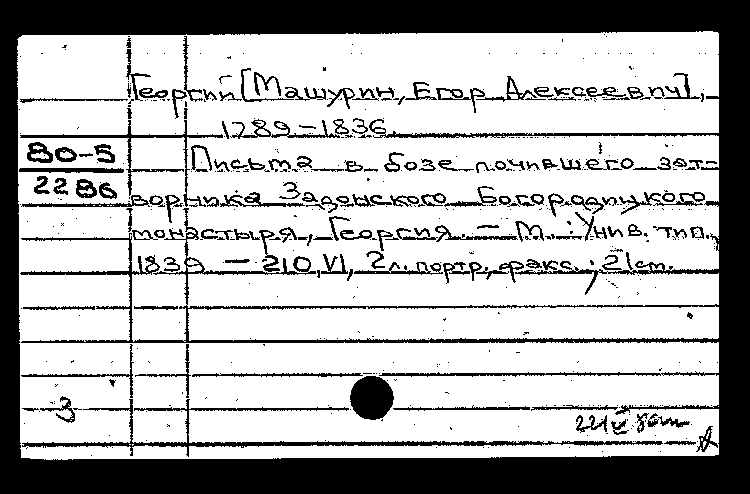 Георгий [Машурин, Егор Алексеевич],
1789-1836.
80-5
2286
Письма в бозе почившего зат-
ворника Задонского Богородицкого
монастыря, Георгия. — М. : Унив. тип.,
1839 — 210, VI, 2 л. портр., факс.; 21 см.
3